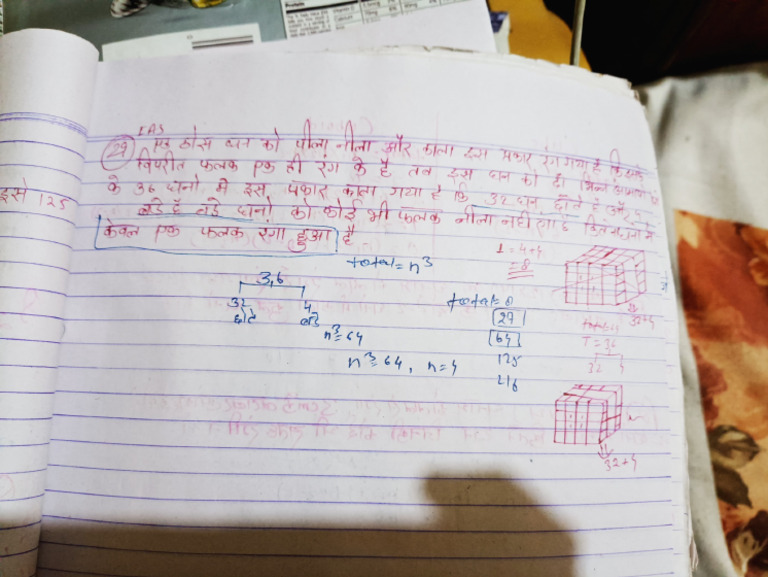 Protein
Calcium
IAS
29 एक ठोस घन को पीला, नीला और काला इस प्रकार रंगा गया है कि
विपरीत फलक एक ही रंग के है तब इस घन को दो भिन्न
के 36 घनो मे इस प्रकार काटा गया है कि 32 घन छोटे है और 4
बडे है बडे घनो को कोई भी फलक नीला नही
केवल एक फलक रंगा हुआ है
इसे 125
1 = 4+4
= 8
total = n³
36
32 4
छोटे बडे
n³=64
n³=64, n=4
total = 8
27
64
125
216
32+4
T = 36
32 4
32+4